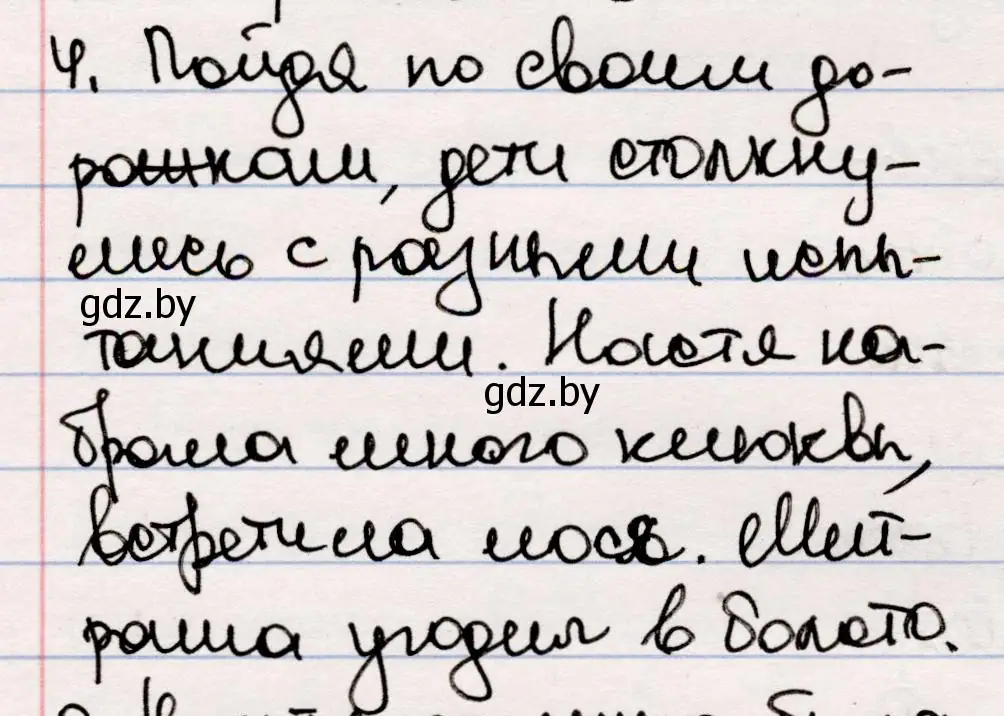 4. Пойдя по своим до-
рожкам, дети столкну-
лись с разными испы-
gdz.by
таниями. Настя на-
gdz.by
брала много клюквы,
встретила лося. Мит-
раша угодил в болото.